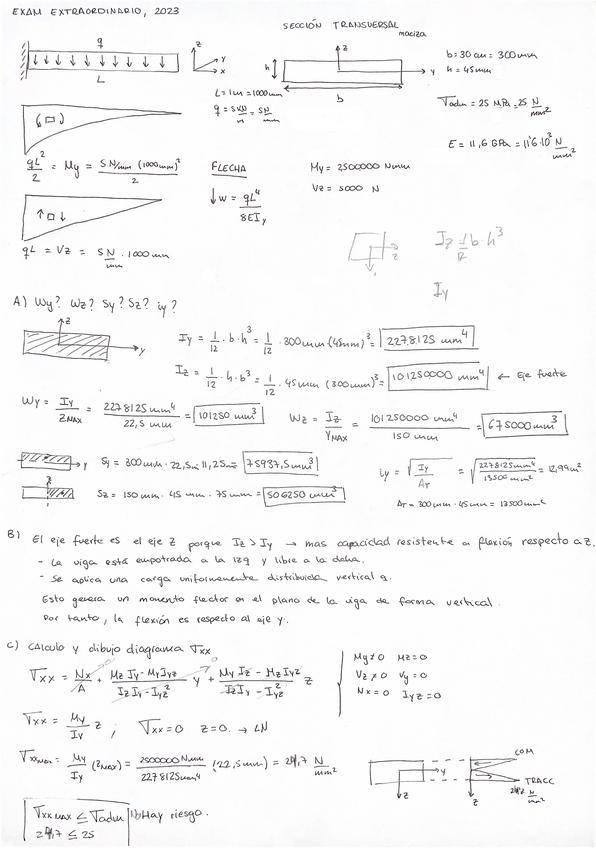 EXAM EXTRAORDINARIO, 2023
SECCIÓN TRANSVERSAL
maciza
q
L
z
y
x
h
z
y
b
b = 30 cm = 300 mm
h = 45 mm
L = 1 m = 1000 mm
q = 5 kN/m = 5 N/mm
σadm = 25 MPa = 25 N/mm²
E = 11,6 GPa = 11'6·10³ N/mm²
qL²/2 = My = 5 N/mm (1000 mm)²/2
FLECHA
↓w = qL⁴/8EIy
My = 2500000 Nmm
Vz = 5000 N
qL = Vz = 5 N/mm · 1000 mm
Iz = 1/12 b·h³
Iy
A) Wy? Wz? Sy? Sz? iy?
z
y
Iy = 1/12 · b · h³ = 1/12 · 300 mm (45 mm)³ = 2278125 mm⁴
Iz = 1/12 · h · b³ = 1/12 · 45 mm (300 mm)³ = 101250000 mm⁴ ← Eje fuerte
Wy = Iy/zMAX = 2278125 mm⁴/22,5 mm = 101250 mm³
Wz = Iz/yMAX = 101250000 mm⁴/150 mm = 675000 mm³
y
Sy = 300 mm · 22,5m · 11,25m = 75937,5 mm³
iy = √(Iy/AT) = √(2278125 mm⁴/13500 mm²) = 12,99 m²
z
Sz = 150 mm · 45 mm · 75 mm = 506250 mm³
AT = 300 mm · 45 mm = 13500 mm²
B) El eje fuerte es el eje z porque Iz > Iy → mas capacidad resistente en flexión respecto a z.
- La viga está empotrada a la izq y libre a la dcha.
- Se aplica una carga uniformemente distribuida vertical q.
Esto genera un momento flector en el plano de la viga de forma vertical.
Por tanto, la flexión es respecto al eje y.
C) Cálculo y dibujo diagrama σxx
σxx = Nx/A + (Mz Iy - My Iyz)/(Iz Iy - Iyz²) y + (My Iz - Mz Iyz)/(Iz Iy - Iyz²) z
My ≠ 0 Mz = 0
Vz ≠ 0 Vy = 0
Nx = 0 Iyz = 0
σxx = My/Iy z ; σxx = 0 z = 0. → LN
σxx max = My/Iy (zMAX) = 2500000 Nmm/2278125 mm⁴ (22,5 mm) = 24,7 N/mm²
y
z
COM
TRACC
24,7 N/mm²
z
σxx MAX ≤ σadm
24,7 ≤ 25
No Hay riesgo.